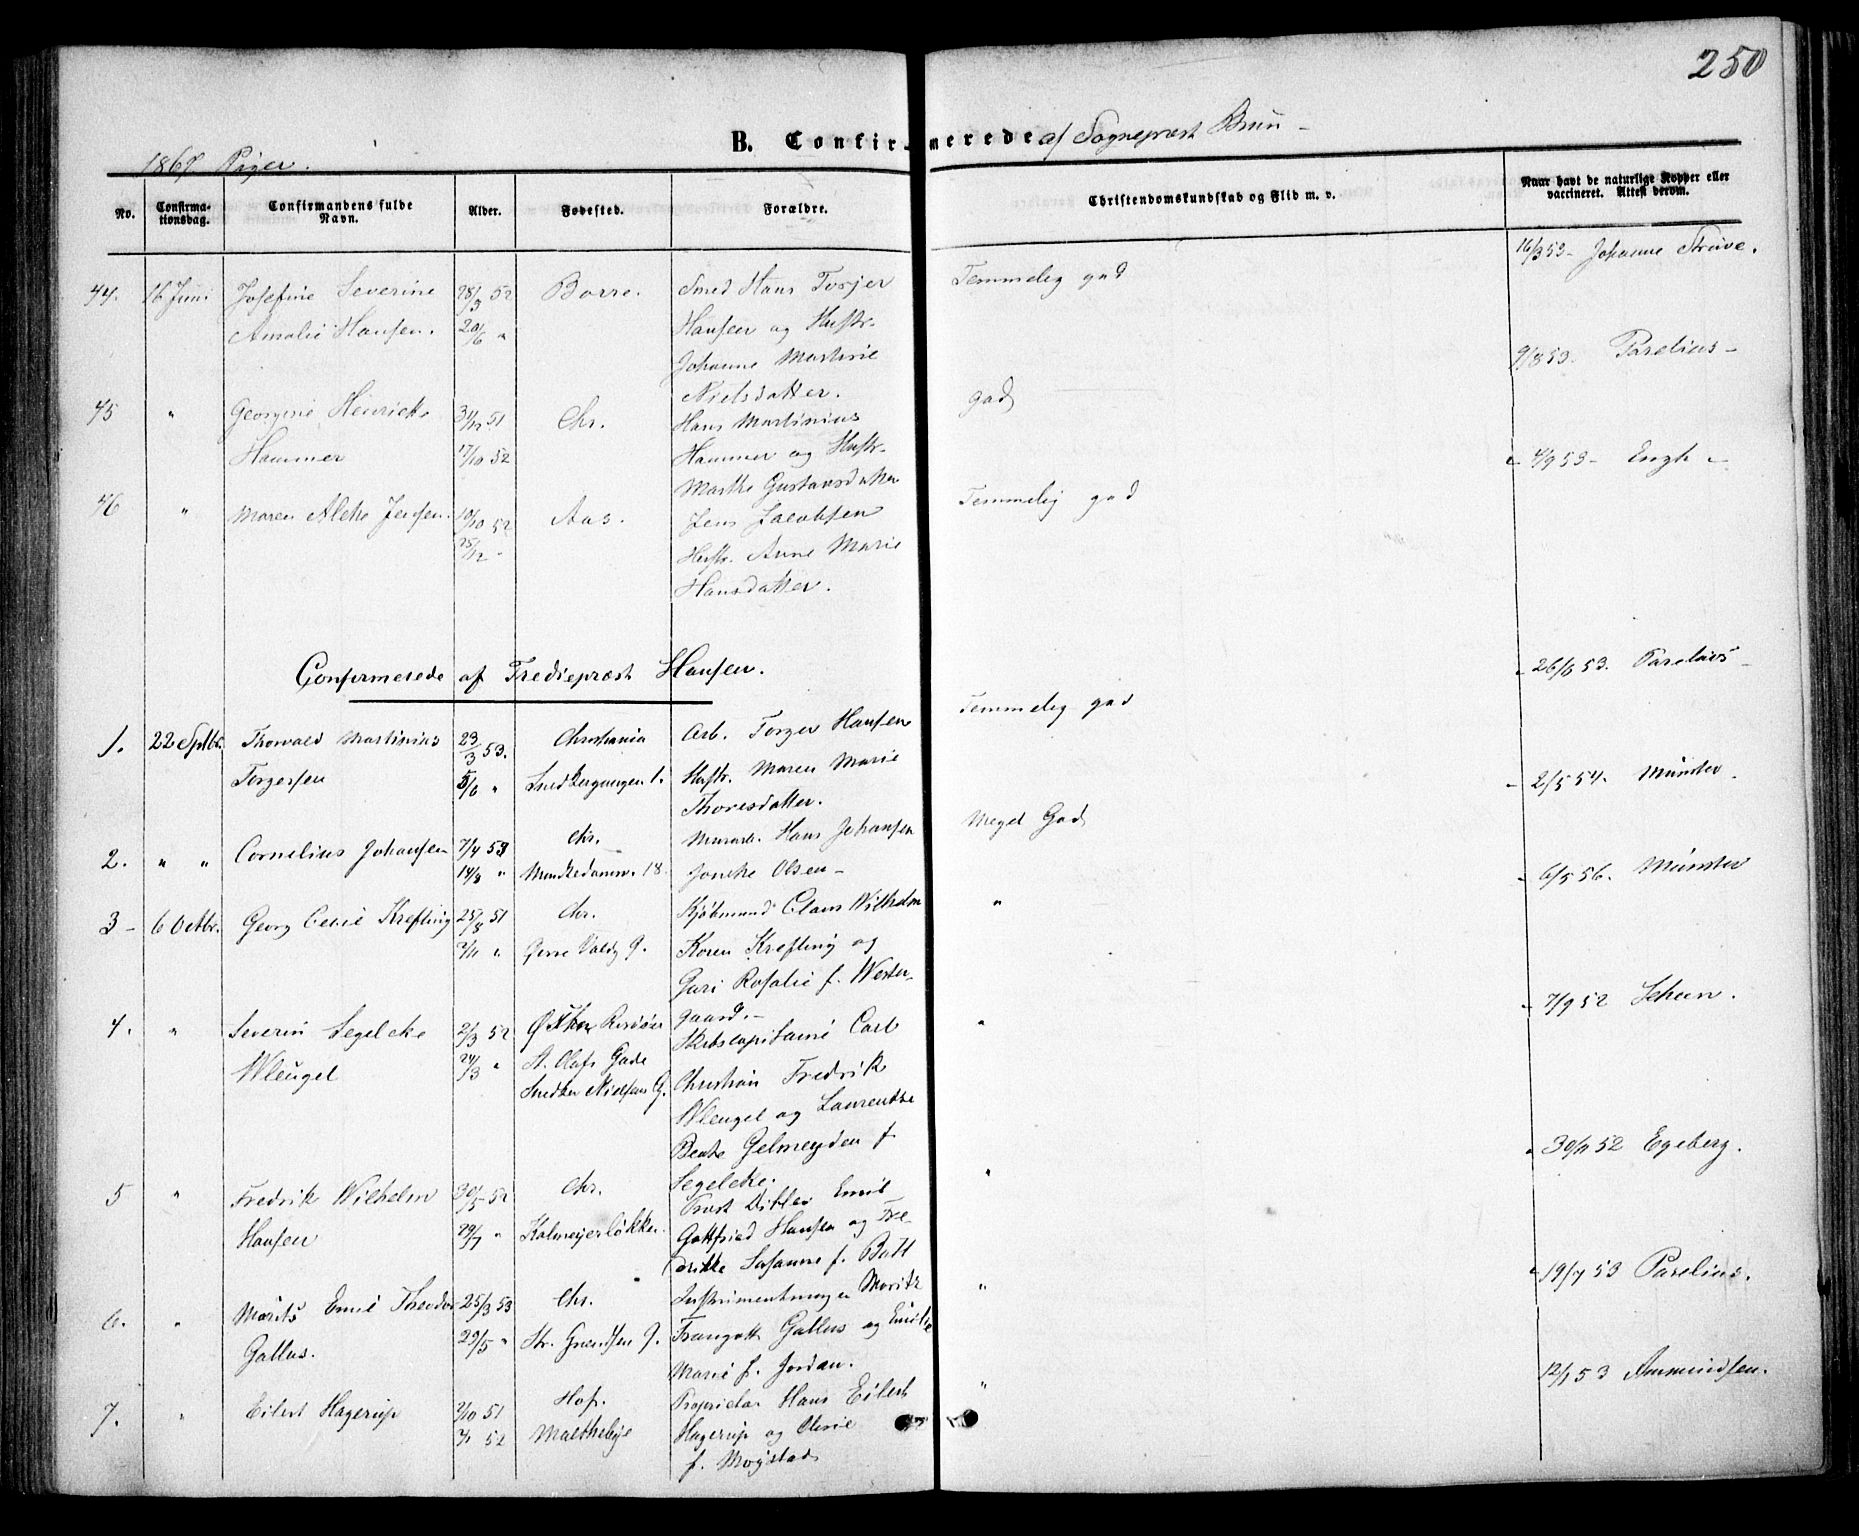 250
B. Confirmerede af Sognepræst Brun -
1867 Piger.
No. Confirmationsdag. Confirmandens fulde Navn. Alder. Fødested. Forældre. Christendomskundskab og Flid m. v. Naar havt de naturlige Kopper eller vaccineret. Attest derom.
44. 16 Juni Josefine Severine 28/3 52 Borre. Smed Hans Torjer Temmelig god 16/3 53 - Johanne Struve.
Amalie Hansen. 20/6 " Hansen og Hustr.
Johanne Martinie 9/8 53. Parelius -
Nielsdatter.
45 " Georgine Henrikke 51 Chr. Hans Martinius god
Hammer 17/10 52 Hammer og Hustr. 4/9 53 - Engh -
Marthe Gustavsdatter
46 " Maren Alette Jensen. 10/10 52 Aas. Jens Jacobsen Temmelig god
25/12 " Hustr. Anne Marie
Hansdatter.
Confirmerede af Trediepræst Hansen.
26/8 53. Parelius -
1. 22 Septbr. Thorvald Martinius 23/3 53. Christiania Arb. Torger Hansen Temmelig god
Torgersen 5/6 " Snedkergangen 1. Hustr. Maren Marie 2/5 54. Münster.
Thoresdatter.
2. " " Cornelius Johansen 7/4 53 Chr. Murarb. Hans Johansen Meget God
14/8 " Munkedamsv. 18. Olsen - 6/5 56. Münster
3 - 6 Octbr. Georg Cecil Krefting 25/8 51 Chr. Kjøbmand Claus Wilhelm "
2/11 " Koren Krefting og
Guri Rosalie f. Wester-
gaard. - 7/9 52 Scheen.
4. " Severin Segelcke 2/3 52 Risøer Carl "
Wleugel 24/3 " St. Olafs Gade Christian Fredrik
Snedker Nielsens G. Wleugel og Laurentze
Beate Gelmeyden f. 30/11 52 Egeberg.
Segelcke.
5 " Fredrik Wilhelm 30/5 52 Chr. Præst Ditlev Emil "
Hansen 29/7 " Kalmeyerløkken. Gottfried Hansen og Fre-
drikke Susanne f. Bull
19/7 53 Parelius.
6. " Morits Emil Theodor 25/3 53 Chr. Instrumentmager Moritz "
Gallus. 29/5 " Str. Grændsen 9. Traugott Gallus og Emilie
Marie f. Jordan. 12/1 53 Ammundsen.
7. " Eilert Hagerup 2/10 51 Hof. Proprietær Hans Eilert "
4/1 52 Maltheby Hagerup og Olivie
f. Mogstad